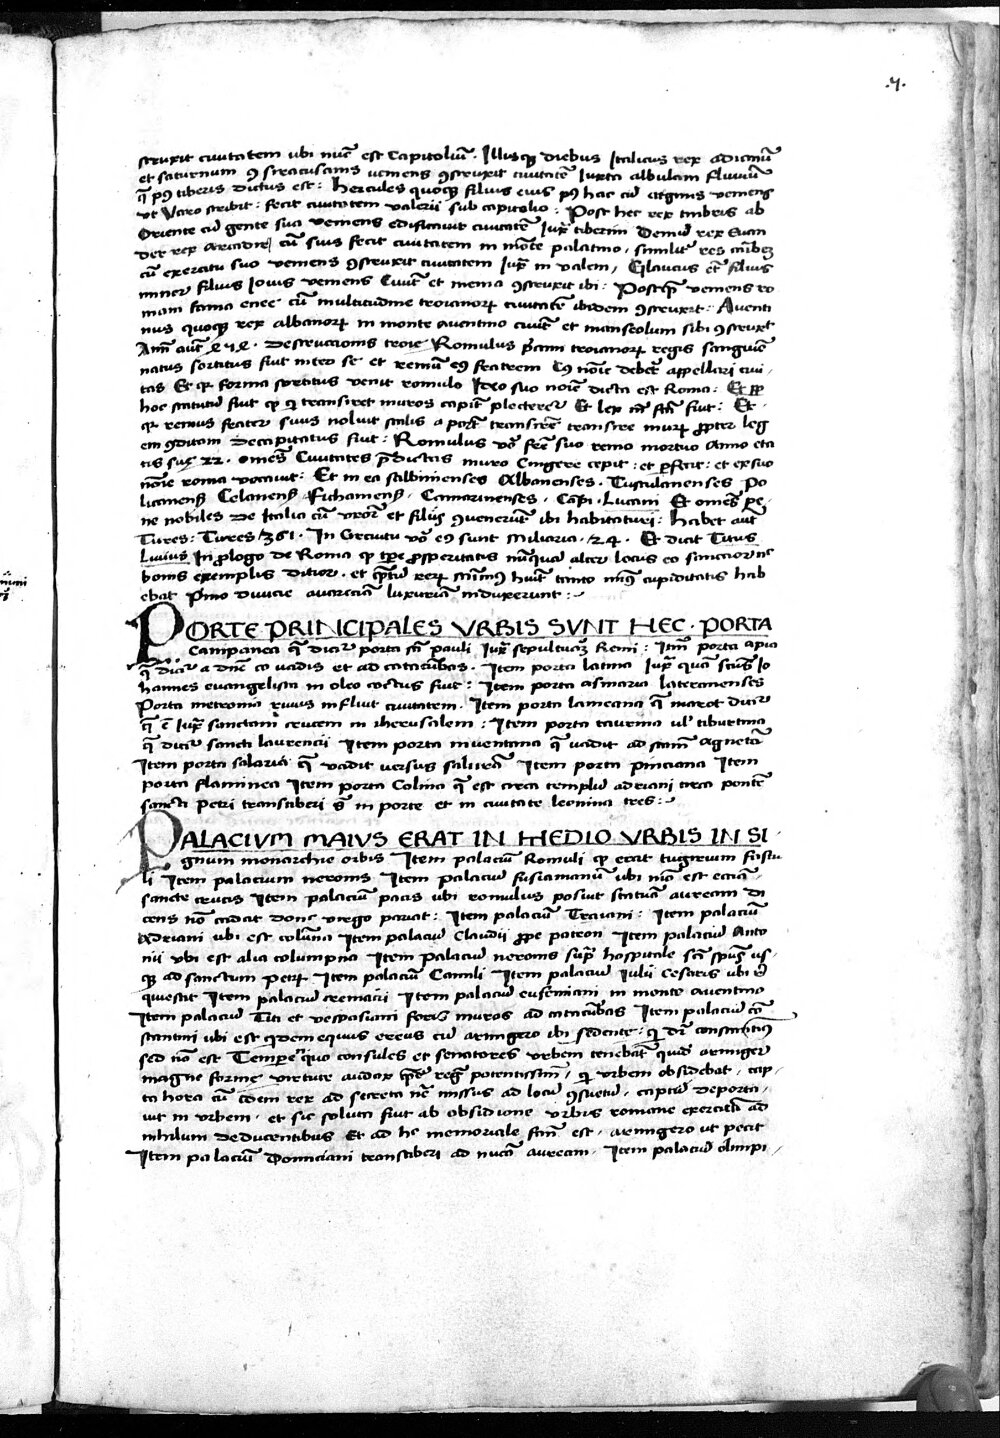 .7.
struxit ciuitatem ubi nūc est Capitoliū. Illisqꝫ diebus Italicus rex
et saturnum ꝯ siracusanis ueniens ꝯstruxit ciuitatē Iuxta albulam fluuiū
q̄ pꝰ tiberis dictus est: hercules quoqꝫ filius eius pꝰ hac cū argiuis ueniens
vt Varo scribit: fecit ciuitatem valerii sub capitolio: Post hec rex tiberis ab
Oriente cū gente sua ueniens edificauit ciuitatē Iux̄ tiberim Demū rex Euan
der rex arcadie cū suis fecit ciuitatem in mōte palatino, similiter rex
cū exercitu suo ueniens ꝯstruxit ciuitatem Iux̄ in valem, Glaucus filius
minor filius Iouis ueniens Ciuit̄ et menia ꝯstruxit ibi: Postq̄ꝫ ueniens ro
mani fama enee cū multitudine troianoꝝ ciuitatē ibidem ꝯstruxit: Auenti
nus quoqꝫ rex albanoꝝ in monte auentino ciuit̄ et manseolum sibi ꝯstruxit
destructionis troie Romulus p̄ami troianoꝝ regis sanguīe
natus sortitus fuit inter se et remū eꝰ fratrem Cꝰ nōie deber̄ appellari ciui,
tas Et qꝛ forma sortitus venit romulo Ideo suo nōie dicta est Roma: Et ꝓp
hoc statutū fuit qꝫ qͥ transiret muros capit̄ plecteret̄ Et lex fuit: Et
qꝛ remus frater suus noluit transire murꝫ ꝓpter leg
em ꝯditam decapitatus fuit: Romulus vō frē suo remo mortuo Anno eta
tis sue 22. omēs Ciuitates p̄dictas muro Cingere cepit: et ꝑfecit: et ex suo
nōie roma uocauit: Et in ea Albanenses. Tusculanenses Po
licanenses Celanenses Fichanienses, Camarinenses, Capū. Lucani Et omēs pe,
ne nobiles de Italia cū vxorī et filijs ꝯuenerūt ibi habitaturi: habet aūt
Tures: Tures 361. In Circuitu vō eꝰ sunt Miliaria. 24. Et dicit Titus
Liuius In ꝓlogo de Roma qꝫ tꝑe ꝓsperitatis nūquā alter locus eo sanctior
bonis exemplis ditior. et q̄tū reꝝ huit̄ tanto minꝰ cupiditatis hab
ebat Pmo diuicie auariciam luxuriam induxerunt:~
PORTE PRINCIPALES VRBIS SVNT HEC. PORTA
Campanea q̄ dicit̄ porta sct̄i pauli Iux̄ sepultuꝝ Remi: Itm̄ porta apia
q̄ dicit̄ a dn̄e co uadis et ad catacūbas. Item porta latina Iux̄ quā sctūs Io
hannes euangelista in oleo coctus fuit: Item porta asinaria lateranenses
Porta metronia riuus influit ciuitatem. Item porta lamcana q̄ maior dicit̄
q̄ ē Iux̄ sanctam crucem in iherusalem: Item porta taurina ul' tiburtina
q̄ dicit̄ sancti laurencii Item porta numentana q̄ uadit ad sctam̄ Agnetā
Item porta salaria q̄ vadit versus salitrā Item porta pinciana Item
porta flaminea Item porta Colina q̄ est circa templū adriani circa pontē
sancti petri transtiberi in porte et in ciuitate leonina tres:~
PALACIVM MAIVS ERAT IN MEDIO VRBIS IN SI,
gnum monarchie orbis Item palaciū Romuli qꝫ erat tugrium faustu
li Item palacium neronis Item palaciū susurianum ubi nūc est ecciā,
sancte crucis Item palaciū pacis ubi romulus posuit statuā auream di
cens nō cadat donec uirgo pariat: Item palaciū Traiani: Item palaciū
Adriani ubi est colūna Item palaciū Claudii ꝓpe patron Item palaciū Anto
nii vbi est alia columpna Item palaciū neronis supra hospitale sct̄i spūs us,
qꝫ ad sanctum petrꝫ Item palaciū Camili Item palaciū Iulii Cesaris ubi
quiescit Item palaciū cremacii Item palaciū eufemiani in monte auentino
Item palaciū Titi et vespasiani foris muros ad catacūbas Item palaciū cō
stantini ubi est qͥdem equus ereus cū armigero ibi sedente: qͥ dr̄ constantinus
sed nō est Tempore quo consules et senatores vrbem tenebāt quidā armiger
magne forme virtute audax potentissimi, qui vrbem obsidebat, cap
ta hora cū idem rex ad secreta nē missus ad locū ꝯsuetū, captū deporta,
uit in vrbem, et sic soluta fuit ab obsidione vrbis romane exercitū ad
nihilum deducentibus Et ad he memoriale fcm̄ est, armigero ut pecit
Item palaciū Domiciani transtiberi ad nucā auream, Item palaciū olimpi,